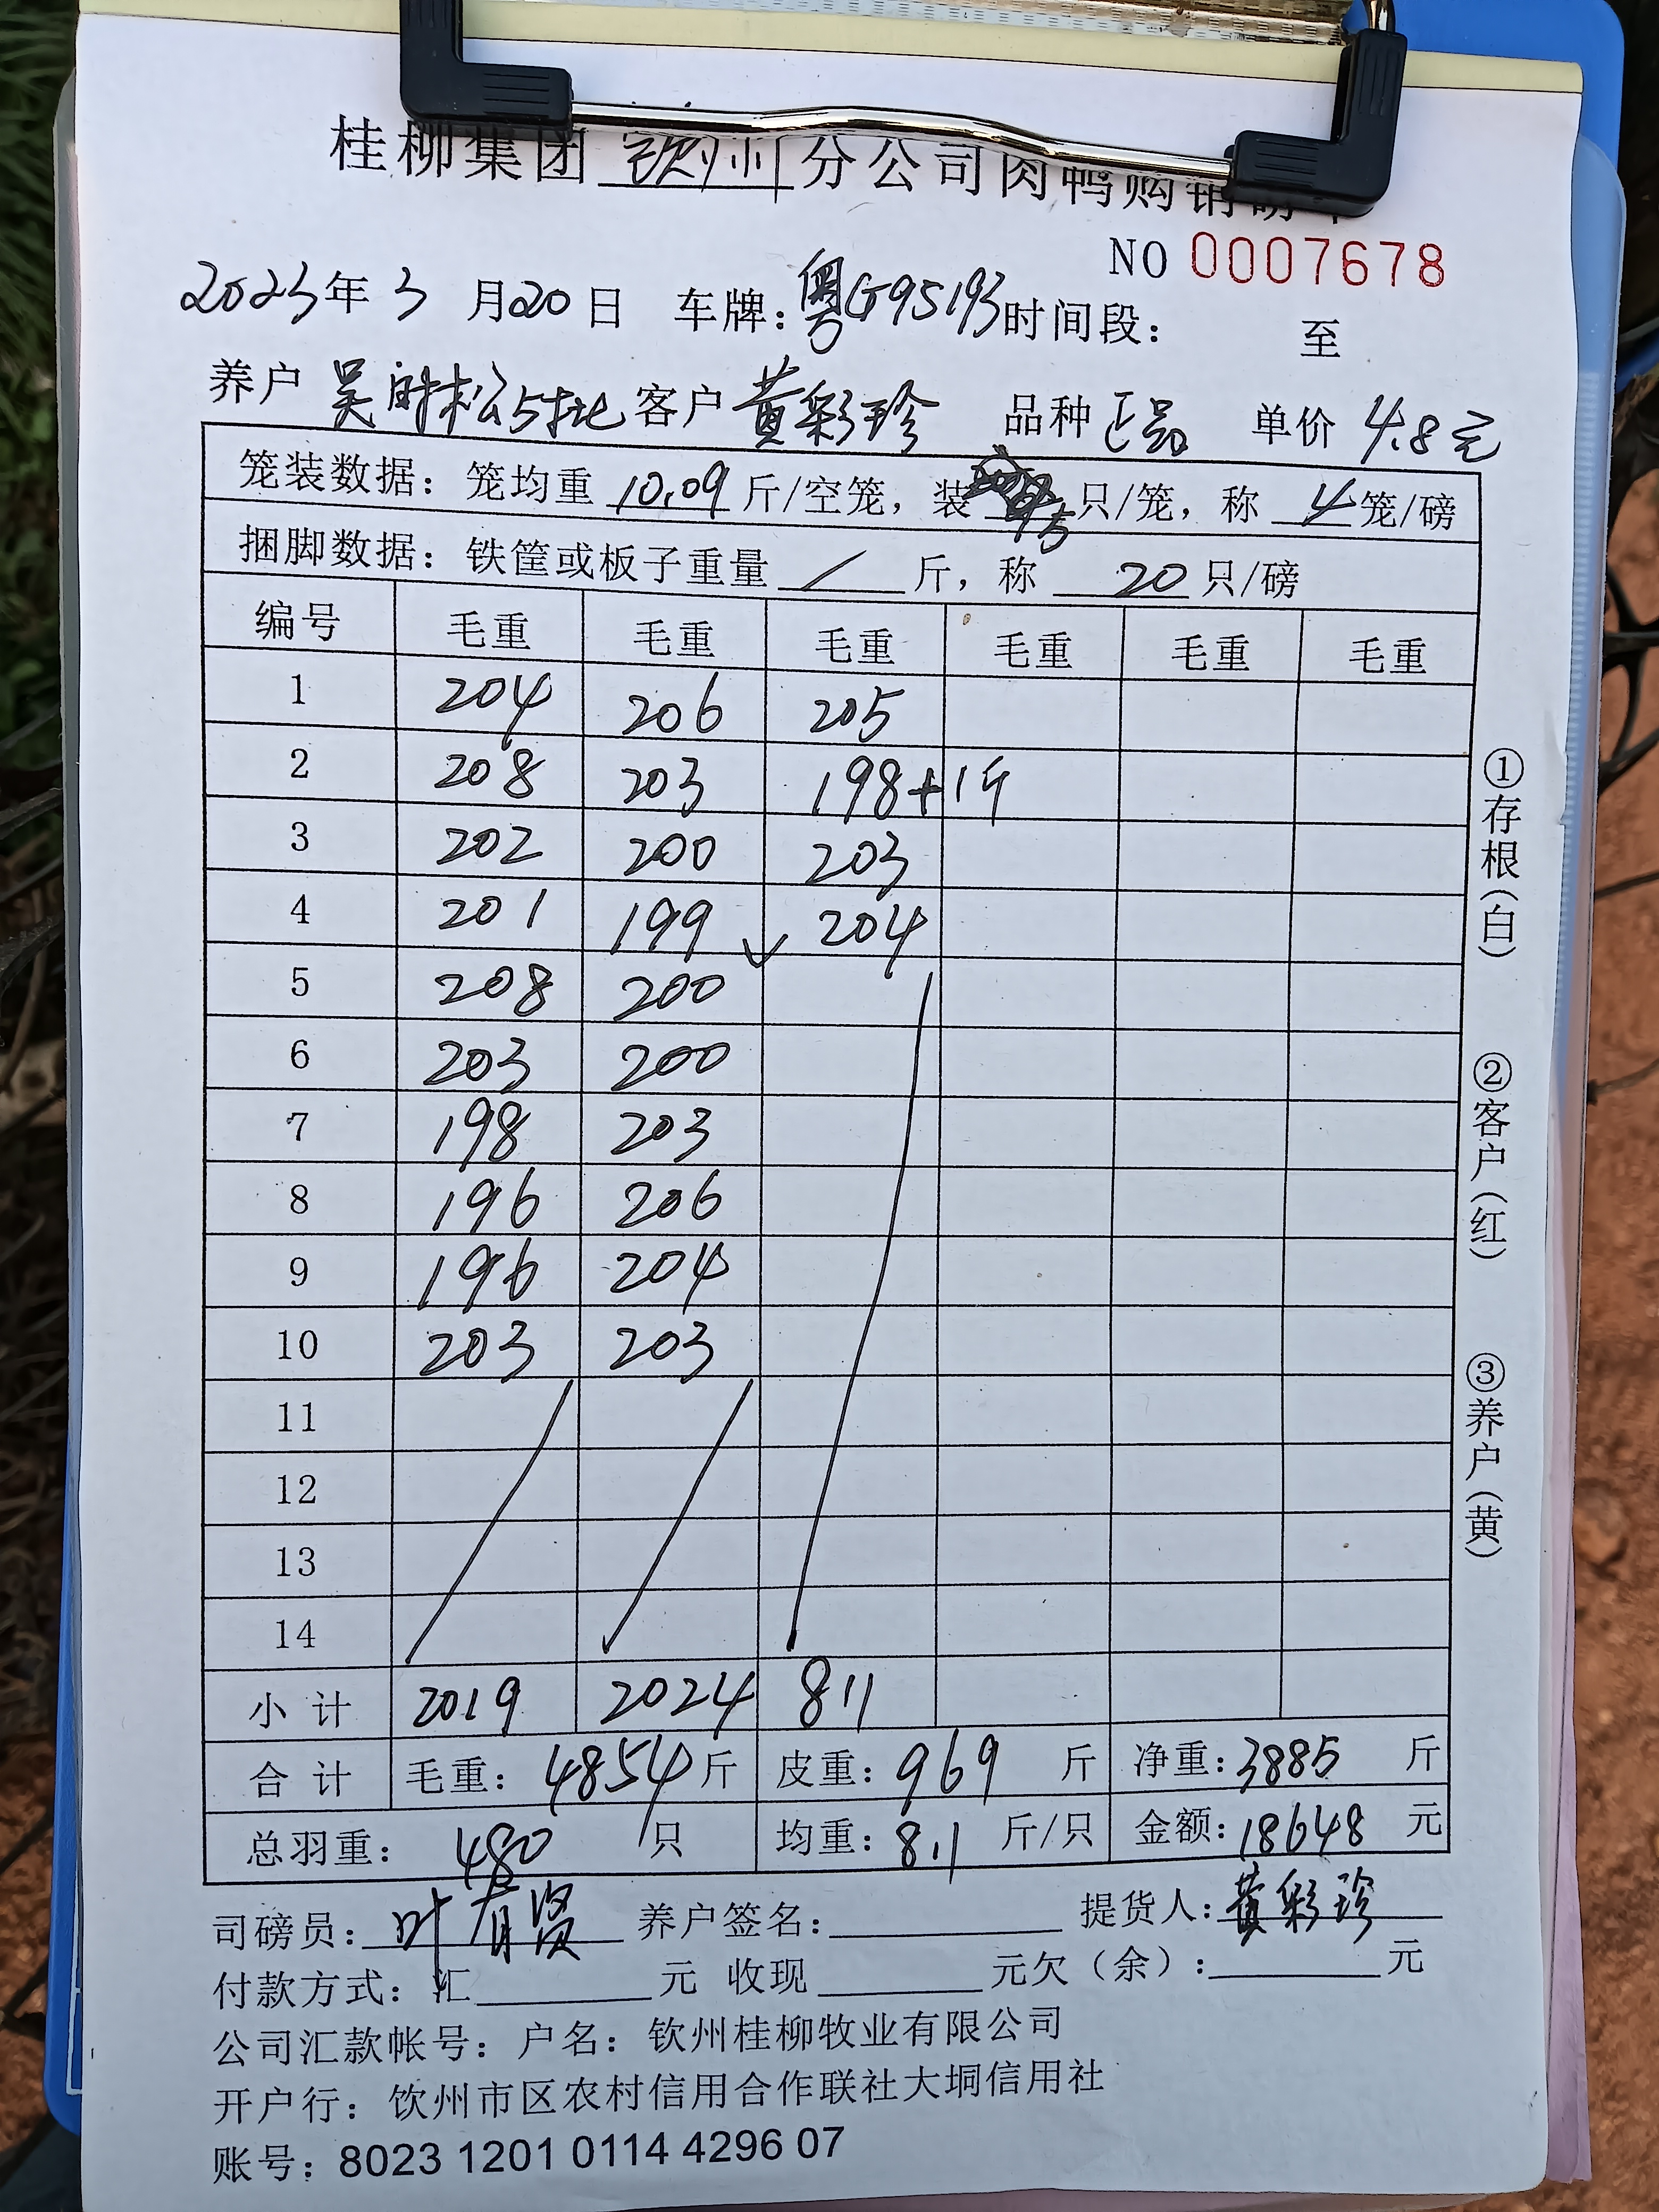 桂柳集团 钦州 分公司肉鸭购销磅单
NO 0007678
2023年 3 月20日 车牌:粤G95193时间段: 至
养户 吴 松5批 客户 黄彩珍 品种 正品 单价 4.8元
笼装数据:笼均重 10.09 斤/空笼,装 5 只/笼,称 4 笼/磅
捆脚数据:铁筐或板子重量 / 斤,称 20 只/磅
编号 毛重 毛重 毛重 毛重 毛重 毛重
1 204 206 205
2 208 203 198+1斤
3 202 200 203
4 201 199 204
5 208 200
6 203 200
7 198 203
8 196 206
9 196 204
10 203 203
11
12
13
14
小计 2019 2024 811
合计 毛重:4854斤 皮重:969 斤 净重:3885 斤
总羽重: 480 只 均重:8.1 斤/只 金额:18648 元
司磅员:叶有贤 养户签名: 提货人:黄彩珍
付款方式:汇 元 收现 元欠(余): 元
公司汇款帐号:户名:钦州桂柳牧业有限公司
开户行:钦州市区农村信用合作联社大垌信用社
账号:8023 1201 0114 4296 07
①存根(白)
②客户(红)
③养户(黄)